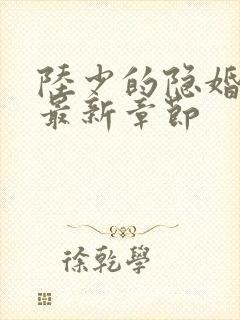 陸少的隐婚
最新章節
徐乾學